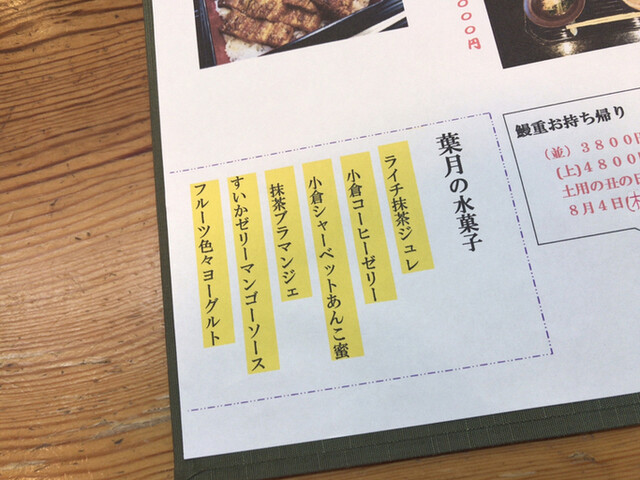 ０００円
鰻重お持ち帰り
（並）３８００円
(上)４８００
土用の丑の日
８月４日(木
葉月の水菓子
ライチ抹茶ジュレ
小倉コーヒーゼリー
小倉シャーベットあんこ蜜
抹茶ブラマンジェ
すいかゼリーマンゴーソース
フルーツ色々ヨーグルト